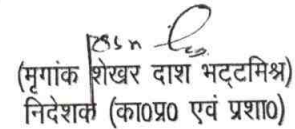 (मृगांक शेखर दाश भट्टमिश्र)
निदेशक (का0प्र0 एवं प्रशा0)